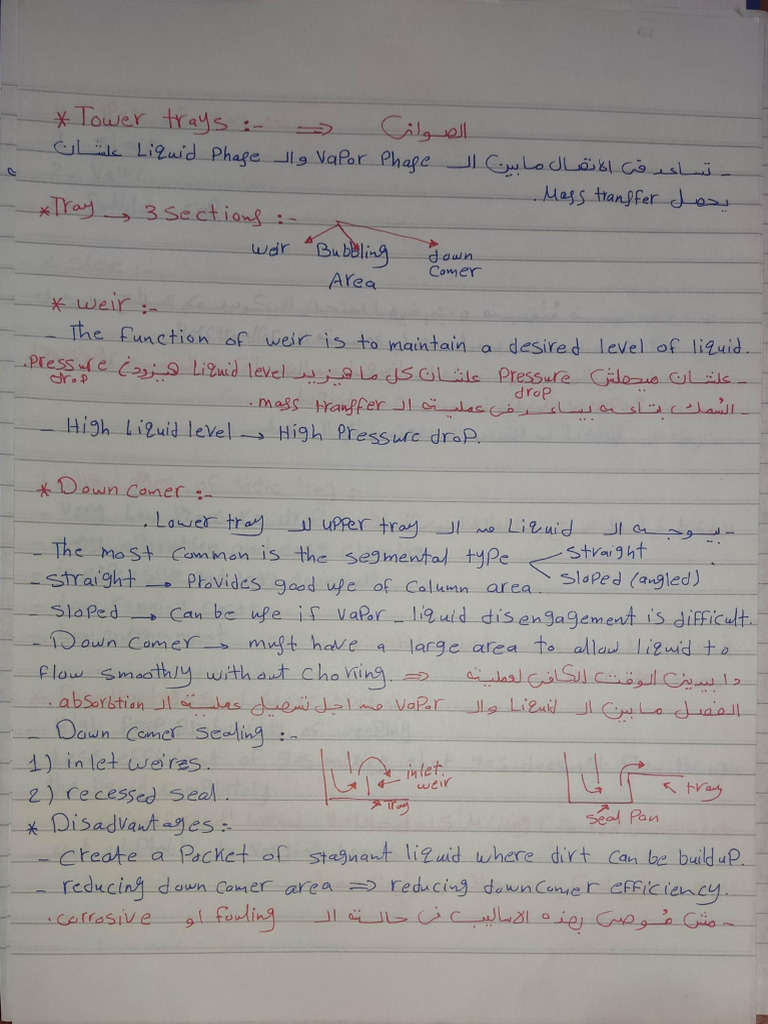 * Tower trays :- ⇒ الصواني
- تساعد في الاتصال ما بين الـ Vapor Phase والـ Liquid Phase علشان
يحصل Mass transfer.
* Tray → 3 Sections :-
weir Bubbling Area down Comer
* weir :-
- The function of weir is to maintain a desired level of liquid.
- علشان ميحصلش Pressure drop علشان كل ما هيزيد Liquid level هيزود Pressure drop.
- السُمك بتاعه بيساعد في عملية الـ mass transfer.
- High Liquid level → High Pressure drop.
* Down Comer :-
- يوجه الـ Liquid من الـ upper tray للـ Lower tray.
- The most common is the segmental type straight
sloped (angled)
- straight → Provides good use of Column area.
- sloped → Can be use if vapor-liquid disengagement is difficult.
- Down Comer → must have a large area to allow liquid to
flow smoothly without choking. ⇒ دا بيديني الوقت الكافي لعملية
الفصل ما بين الـ Liquid والـ Vapor من اجل تسهيل عملية الـ absorbtion.
- Down Comer sealing :-
1) inlet weires.
inlet weir
Tray
2) recessed seal.
tray
seal Pan
* Disadvantages :-
- Create a Pocket of stagnant liquid where dirt can be build up.
- reducing down Comer area ⇒ reducing down Comer efficiency.
- مش مُوصى بهذه الاساليب في حالة الـ fouling او corrosive.